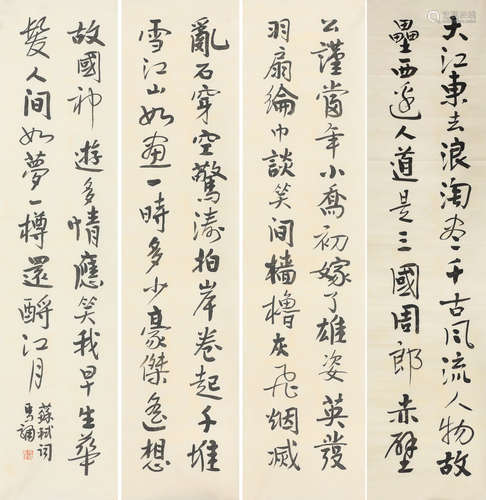 大江東去浪淘尽千古风流人物故
壘西邊人道是三國周郎赤壁
公謹當年小喬初嫁了雄姿英發
羽扇綸巾談笑间檣櫓灰飛烟滅
亂石穿空驚濤拍岸卷起千堆
雪江山如畫一時多少豪傑遙想
故國神遊多情應笑我早生華
髮人间如夢一樽還酹江月
蘇軾詞